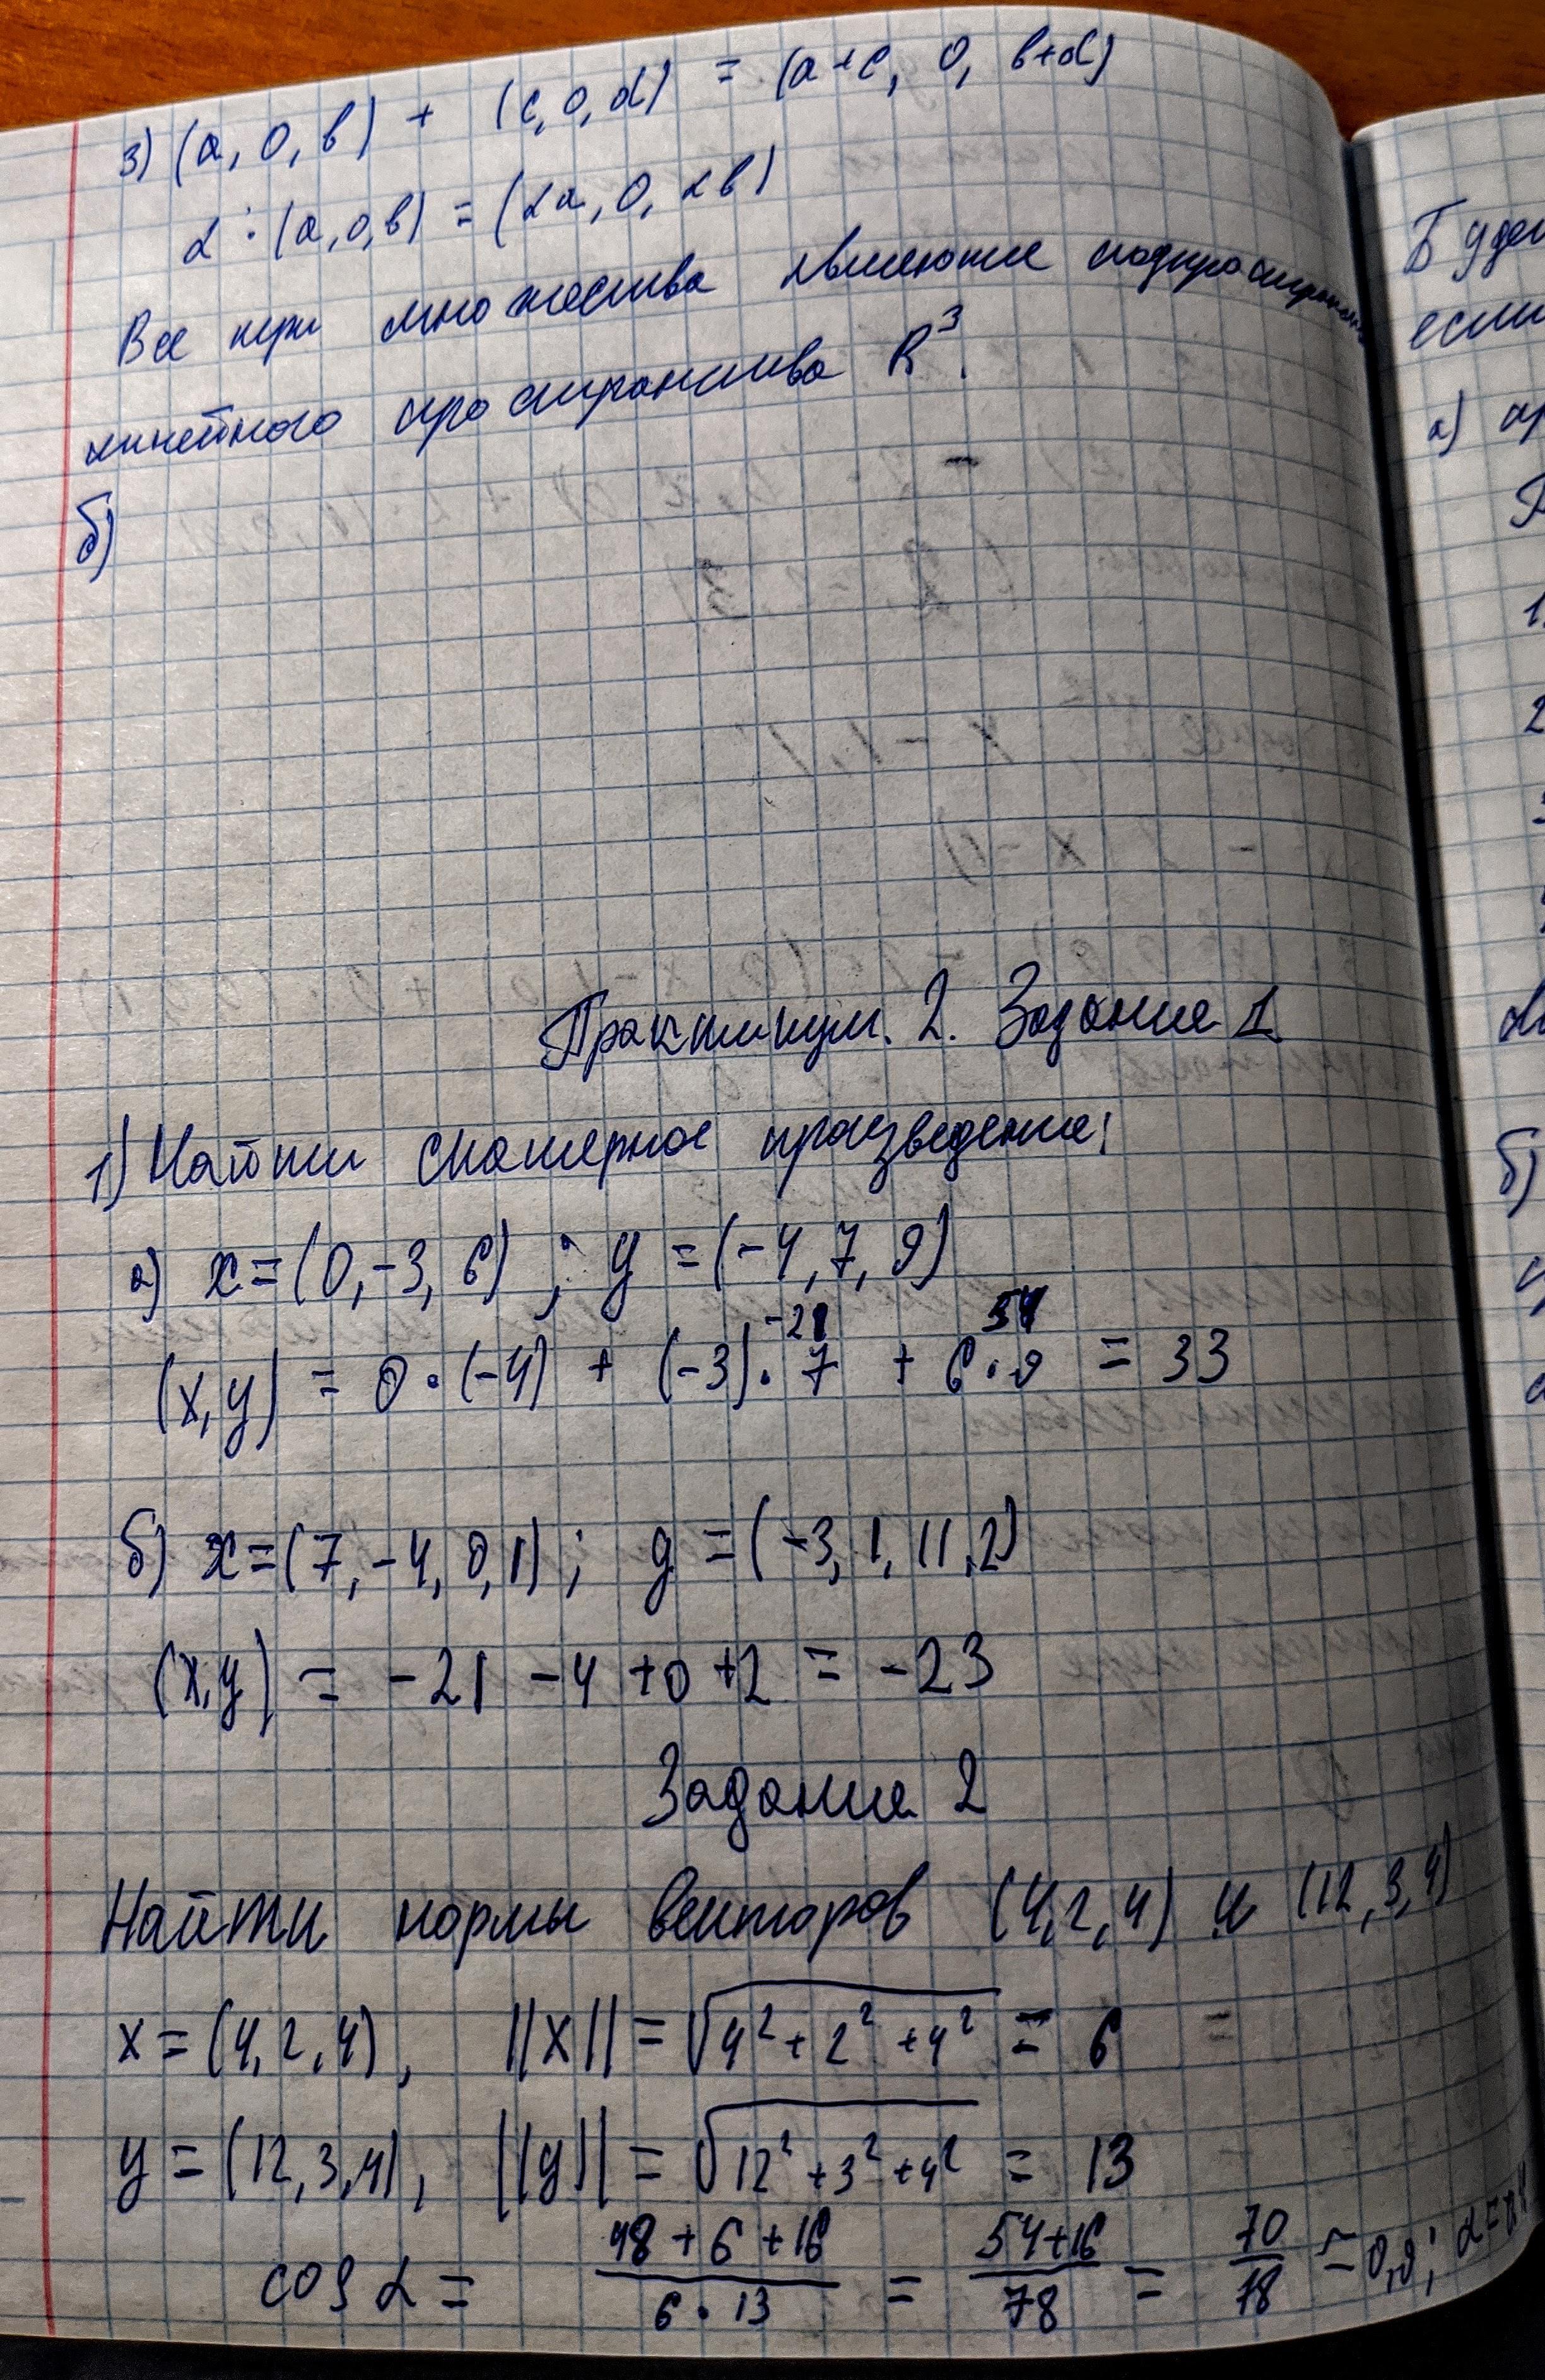 3) (a, 0, b) + (c, 0, d) = (a+c, 0, b+d)
α · (a, 0, b) = (αa, 0, αb)
Все три множества являются подпространствами
линейного пространства R³.
б)
Практикум. 2. Задание 1
1) Найти скалярное произведение:
а) x = (0, -3, 6) ; y = (-4, 7, 9)
-21 54
(x, y) = 0 · (-4) + (-3) · 7 + 6 · 9 = 33
б) x = (7, -4, 0, 1) ; y = (-3, 1, 11, 2)
(x, y) = -21 - 4 + 0 + 2 = -23
Задание 2
Найти нормы векторов (4, 2, 4) и (12, 3, 4)
x = (4, 2, 4), ||x|| = √(4² + 2² + 4²) = 6
y = (12, 3, 4), ||y|| = √(12² + 3² + 4²) = 13
cos α = (48 + 6 + 16)/(6 · 13) = (54 + 16)/78 = 70/78 ≈ 0,9; α =
Будем
если
а)
1.
2
б)